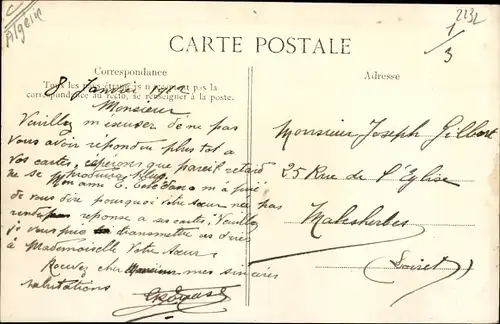 Algérie
2232
1/3
CARTE POSTALE
Correspondance
Tous les pays étrangers n'acceptent pas la
correspondance au recto, se renseigner à la poste.
Adresse
8 Janvier 1912
Monsieur
Veuillez m'excuser de ne pas
vous avoir repondu plus tot a
vos cartes, espérons que pareil retard
ne se produira plus.
Mon ami E. m'a prié
de vous dire pourquoi votre sœur ne pas
reponse a ses cartes. Veuillez
je vous prie transmettre
à Mademoiselle Votre Sœur
Recevez cher Monsieur mes sincères
salutations
Monsieur Joseph Gilbert
25 Rue de l'Eglise
Malesherbes
(Loiret)